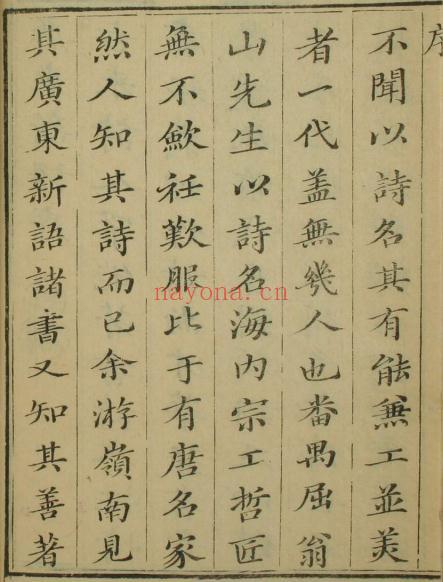 序
不聞以詩名其有能兼工並美
者一代盖無幾人也番禺屈翁
山先生以詩名海内宗工哲匠
無不歛衽歎服比于有唐名家
然人知其詩而已余游嶺南見
其廣東新語諸書又知其善著
nayona.cn